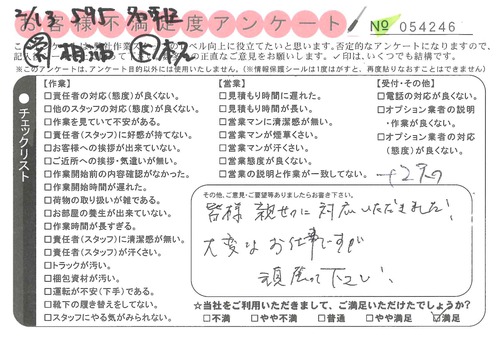 2/13 595
お客様不満足度アンケート
No 054246
否定的なアンケートになりますので、
の正直なご意見をお願いします。✓印は、いくつでも結構です。
※このアンケートは、アンケート目的以外には使用いたしません。(※情報保護シールは1度はがすと、再度貼りなおすことはできません)
チェックリスト
【作業】
□責任者の対応(態度)が良くない。
□他のスタッフの対応(態度)が良くない。
□作業を見ていて不安がある。
□責任者(スタッフ)に好感が持てない。
□お客様への挨拶が出来ていない。
□ご近所への挨拶・気遣いが無い。
□作業開始前の内容確認がなかった。
□作業開始時間が遅れた。
□荷物の取り扱いが雑である。
□お部屋の養生が出来ていない。
□作業時間が長すぎる。
□責任者(スタッフ)に清潔感が無い。
□責任者(スタッフ)が汗くさい。
□トラックが汚い。
□梱包資材が汚い。
□運転が不安(下手)である。
□靴下の履き替えをしてない。
□スタッフにやる気がみられない。
【営業】
□見積もり時間に遅れた。
□見積もり時間が長い。
□営業マンに清潔感が無い。
□営業マンが煙草くさい。
□営業マンが汗くさい。
□営業態度が良くない。
□営業の説明と作業が一致してない。
【受付・その他】
□電話の対応が良くない。
□オプション業者の説明
・作業が良くない。
□オプション業者の対応
(態度)が良くない。
その他、ご意見・ご要望等ありましたらお書き下さい。
皆様 親切に対応いただきました!
大変なお仕事ですが
頑張って下さい。
☆当社をご利用いただきまして、ご満足いただけたでしょうか?
□不満 □やや不満 □普通 □やや満足 ☑満足